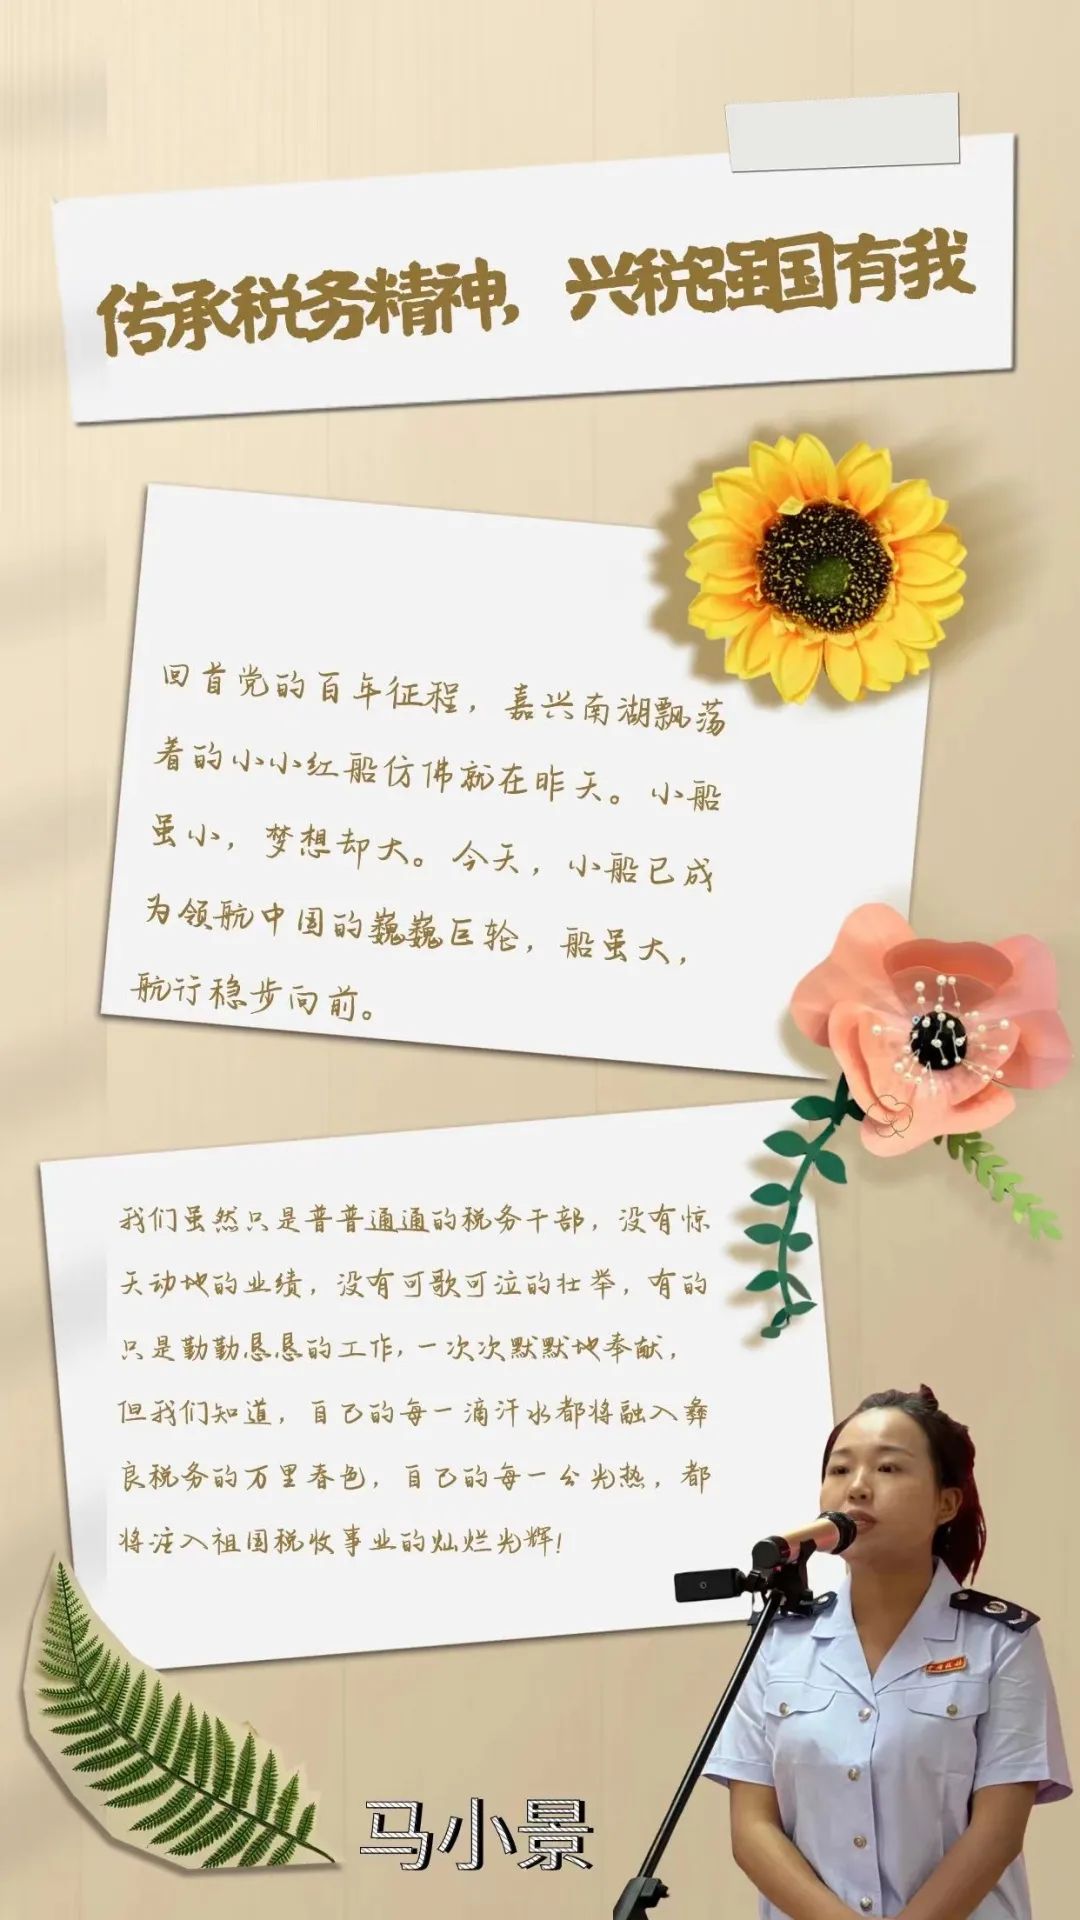 传承税务精神，兴税强国有我
回首党的百年征程，嘉兴南湖飘荡
着的小小红船仿佛就在昨天。小船
虽小，梦想却大。今天，小船已成
为领航中国的巍巍巨轮，船虽大，
航行稳步向前。
我们虽然只是普普通通的税务干部，没有惊
天动地的业绩，没有可歌可泣的壮举，有的
只是勤勤恳恳的工作，一次次默默地奉献，
但我们知道，自己的每一滴汗水都将融入彝
良税务的万里春色，自己的每一分光热，都
将注入祖国税收事业的灿烂光辉！
马小景